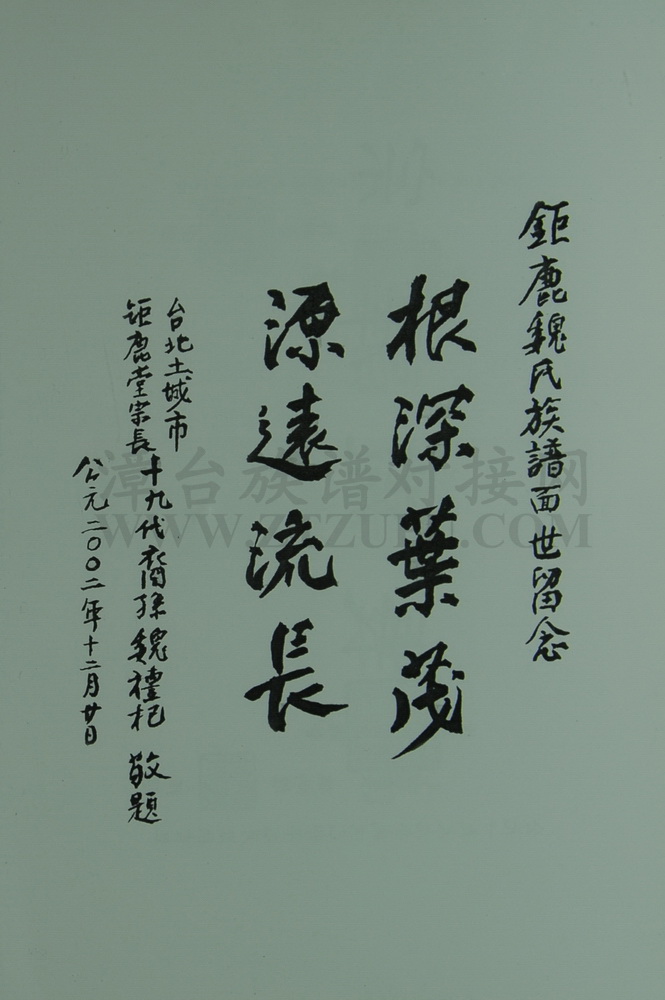 鉅鹿魏氏族譜面世留念
根深葉茂
源遠流長
台北土城市
鉅鹿堂宗長十九代裔孫魏禮杞 敬題
公元二〇〇二年十二月廿日
漳台族谱对接网
WWW.ZTZUPU.COM